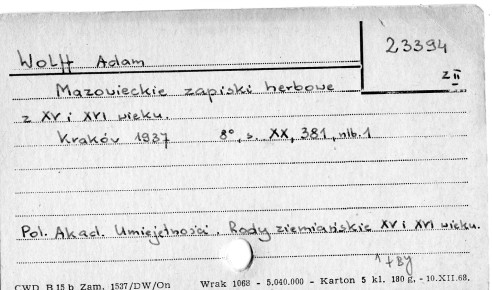 WOLFF Adam
23394
Z II
Mazowieckie zapiski herbowe
z XV i XVI wieku.
Kraków 1937 8°, s. XX, 381, nlb. 1
Pol. Akad. Umiejętności. Rody ziemiańskie XV i XVI wieku.
CWD B 15 b Zam. 1537/DW/On Wrak 1068 - 5.040.000 - Karton 5 kl. 180 g. - 10.XII.68.